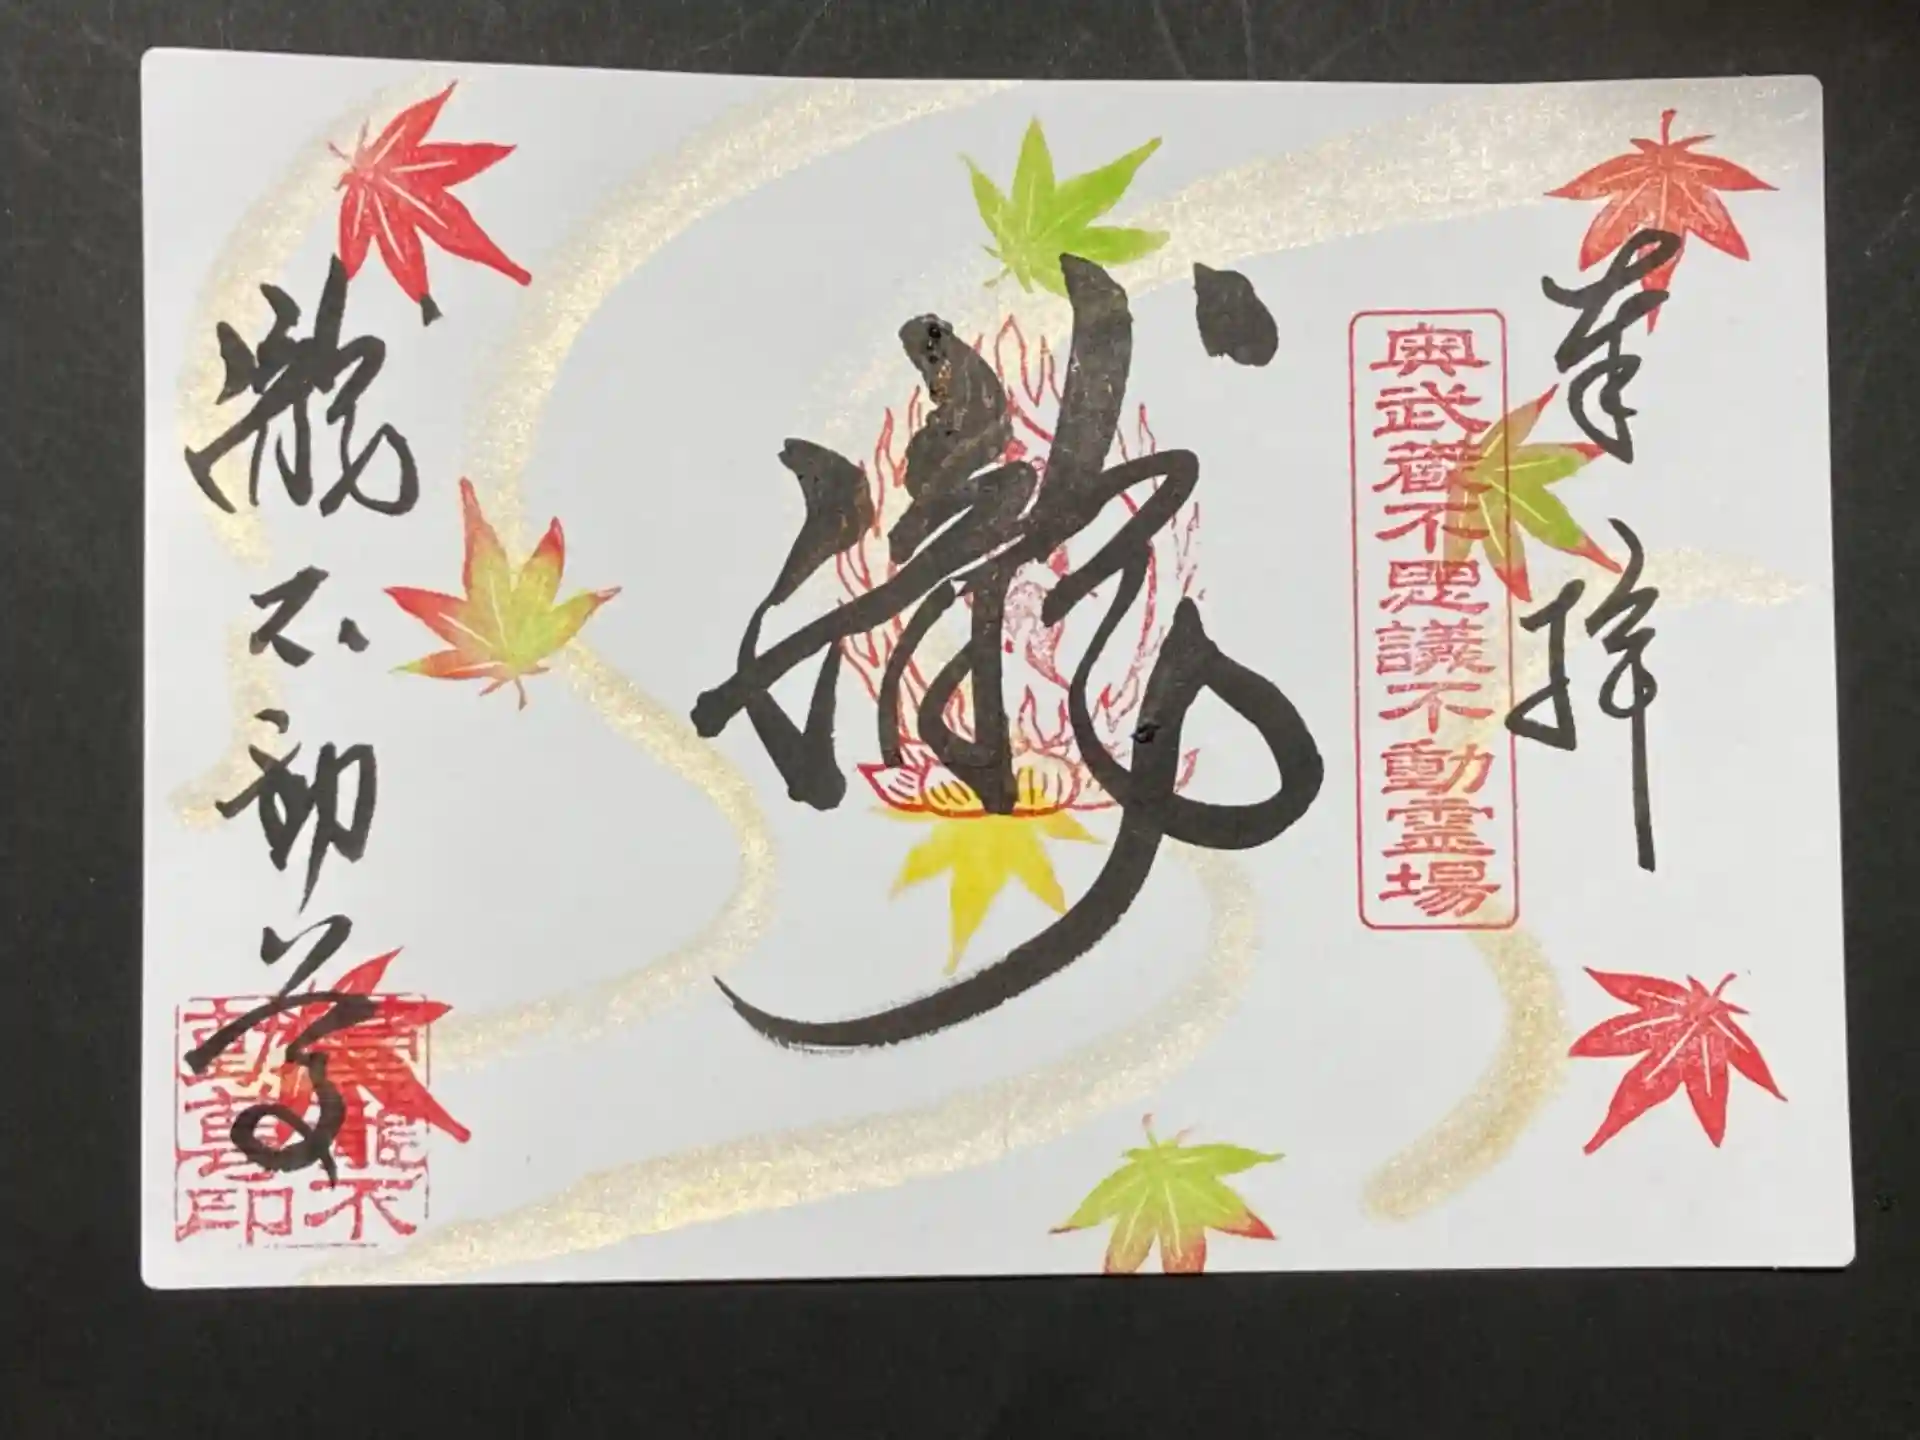 奉拝
奥武蔵不思議不動霊場
瀧
瀧不動尊
龍不
動尊印